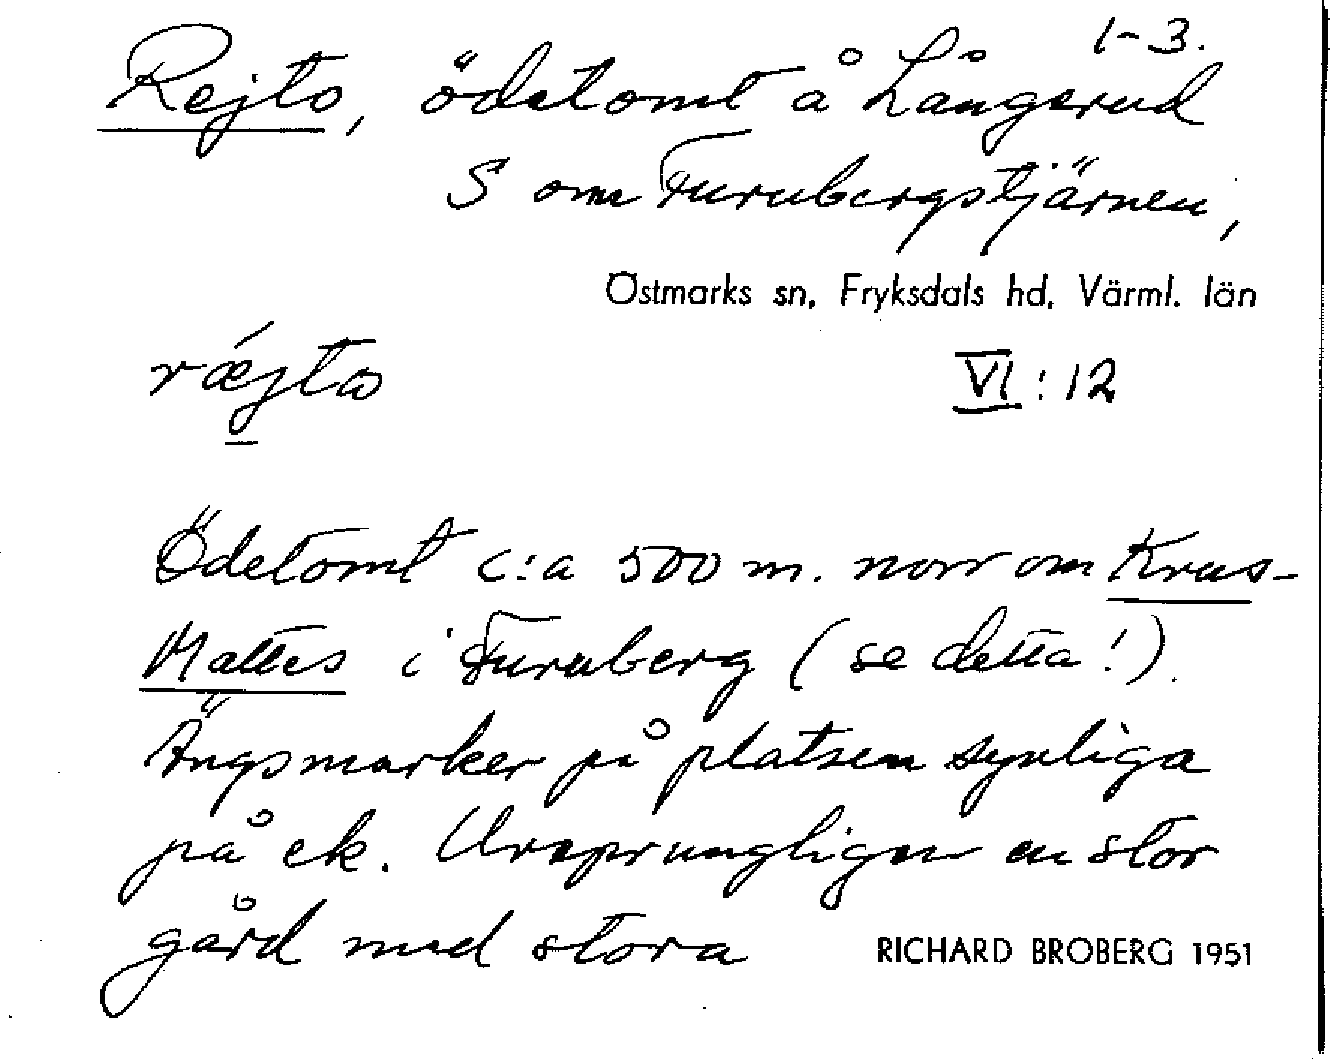 1-3.
Rejto, ödetomt å Långerud
S om Furubergstjärnen,
Östmarks sn, Fryksdals hd, Värml. län
rǽjto VI:12
Ödetomt c:a 500 m. norr om Krus-
Mattes i Furuberg (se detta!).
Ängsmarker på platsen synliga
på ek. Ursprungligen en stor
gård med stora
RICHARD BROBERG 1951